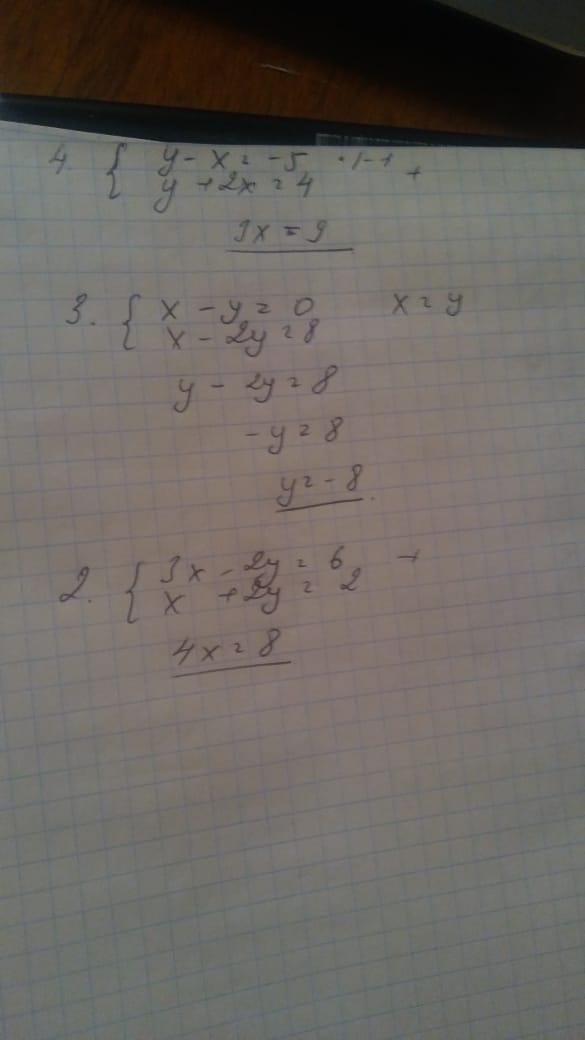 4. { y - x = -5 · | -1 +
y + 2x = 4
3x = 9
3. { x - y = 0 x = y
x - 2y = 8
y - 2y = 8
-y = 8
y = -8.
2. { 3x - 2y = 6 +
x + 2y = 2
4x = 8